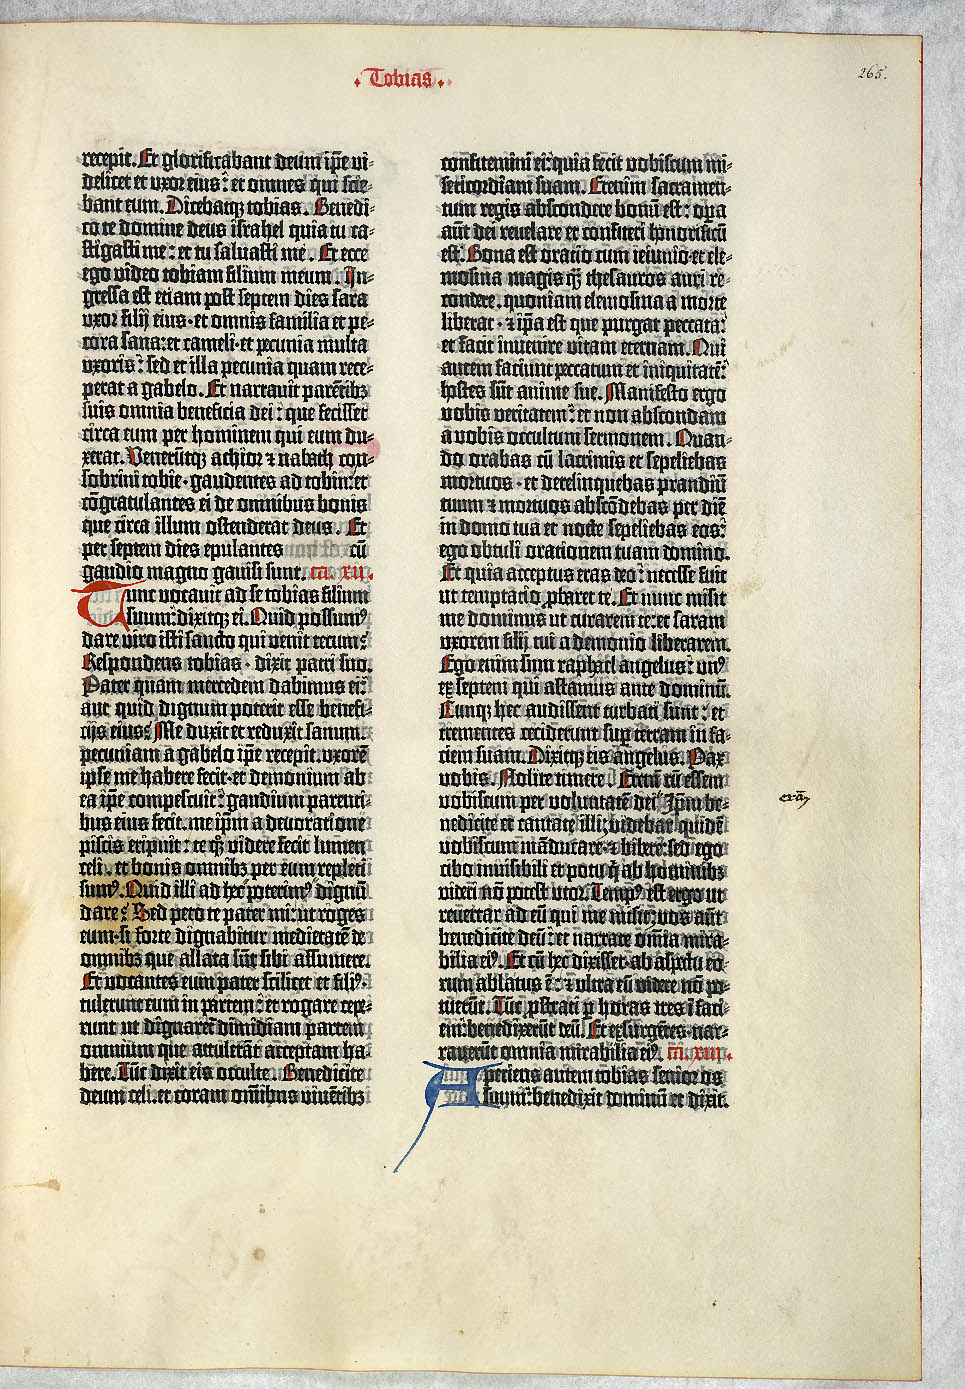 Tobias
265.
recepit. Et glorificabant deum ip̄e vi-
delicet et vxor eius: et omnes qui scie-
bant eum. Dicebatqꝫ tobias. Benedi-
co te domine deus israhel quia tu ca-
stigasti me: et tu saluasti me. Et ecce
ego video tobiam filium meum. In-
gressa est etiam post septem dies sara
vxor filij eius · et omnis familia et pe-
cora sana: et cameli · et pecunia multa
vxoris: sed et illa pecunia quam rece-
perat a gabelo. Et narrauit parētibꝫ
suis omnia beneficia dei: que fecisset
circa eum per hominem qui eum du-
xerat. Venerūtqꝫ achior ⁊ nabath con-
sobrini tobie · gaudentes ad tobin: et
cōgratulantes ei de omnibus bonis
que circa illum ostenderat deus. Et
per septem dies epulantes cū
gaudio magno gauisi sunt. ca. xii.
Tunc vocauit ad se tobias filium
suum: dixitqꝫ ei. Quid possumꝰ
dare viro isti sancto qui venit tecum?
Respondens tobias · dixit patri suo.
Pater quam mercedem dabimus ei:
aut quid dignum poterit esse benefi-
cijs eius? Me duxit et reduxit sanum.
pecuniam a gabelo ip̄e recepit. vxorē
ipse me habere fecit · et demonium ab
ea ip̄e compescuit: gaudium parenti-
bus eius fecit. me ip̄m a deuoratione
piscis eripuit: te qꝫ videre fecit lumen
celi. et bonis omnibꝫ per eum repleti
sumꝰ. Quid illi ad hec poterimꝰ dignū
dare? Sed peto te pater mi: ut roges
eum · si forte dignabitur medietatem de
omnibꝫ que allata sūt sibi assumere.
Et vocantes eum pater scilicet et filiꝰ ·
tulerunt eum in partem: et rogare cepe-
runt ut dignaret̄ dimidiam partem
omnium que attulerāt acceptam ha-
bere. Tūc dixit eis occulte. Benedicite
deum celi. et coram om̄ibus viuētibꝫ
confitemini ei: quia fecit vobiscum mi-
sericordiam suam. Etenim sacramen-
tum regis abscondere bonū est: op̄a
aūt dei reuelare et confiteri honorificū
est. Bona est oratio cum ieiunio · et ele-
mosina magis qꝫ thesauros auri re-
condere. quoniam elemosina a morte
liberat · ⁊ ip̄a est que purgat peccata:
et facit inuenire vitam eternam. Qui
autem faciunt peccatum et iniquitatē:
hostes sūt anime sue. Manifesto ergo
vobis veritatem: et non abscondam
a vobis occultum sermonem. Quan-
do orabas cū lacrimis et sepeliebas
mortuos · et derelinquebas prandiū
tuum ⁊ mortuos abscōdebas per diē
in domo tua et nocte sepeliebas eos:
ego obtuli orationem tuam domino.
Et quia acceptus eras deo: necesse fuit
ut temptatio ꝓbaret te. Et nunc misit
me dominus ut curarem te: et saram
vxorem filij tui a demonio liberarem.
Ego enim sum raphael angelus: vnꝰ
ex septem qui astamus ante dominū.
Cunqꝫ hec audissent turbati sunt: et
trementes ceciderunt suꝑ terram in fa-
ciem suam. Dixitqꝫ eis angelus. Pax
vobis. Nolite timere. Etenī cū essem
vobiscum per voluntatē dei: Ip̄m be-
nedicite et cantate illi, videbar quidē
vobiscum māducare · ⁊ bibere: sed ego
cibo inuisibili et potu q̇ ab hominibꝫ
videri nō potest vtor. Tempꝰ est ergo ut
reuertar ad eū qui me misit: vos aūt
benedicite deū: et narrate om̄ia mira-
bilia eiꝰ. Et cū hec dixisset · ab aspectu eo-
rum ablatus ē: ⁊ vltra eū videre nō po-
tuerūt. Tūc ꝓstrati ꝑ horas tres ī faci-
em: benedixerūt deū. Et exsurgētes · nar-
rauerūt omnia mirabilia eiꝰ. ca. xiii.
Aperiens autem tobias senior os
suum: benedixit dominū et dixit.